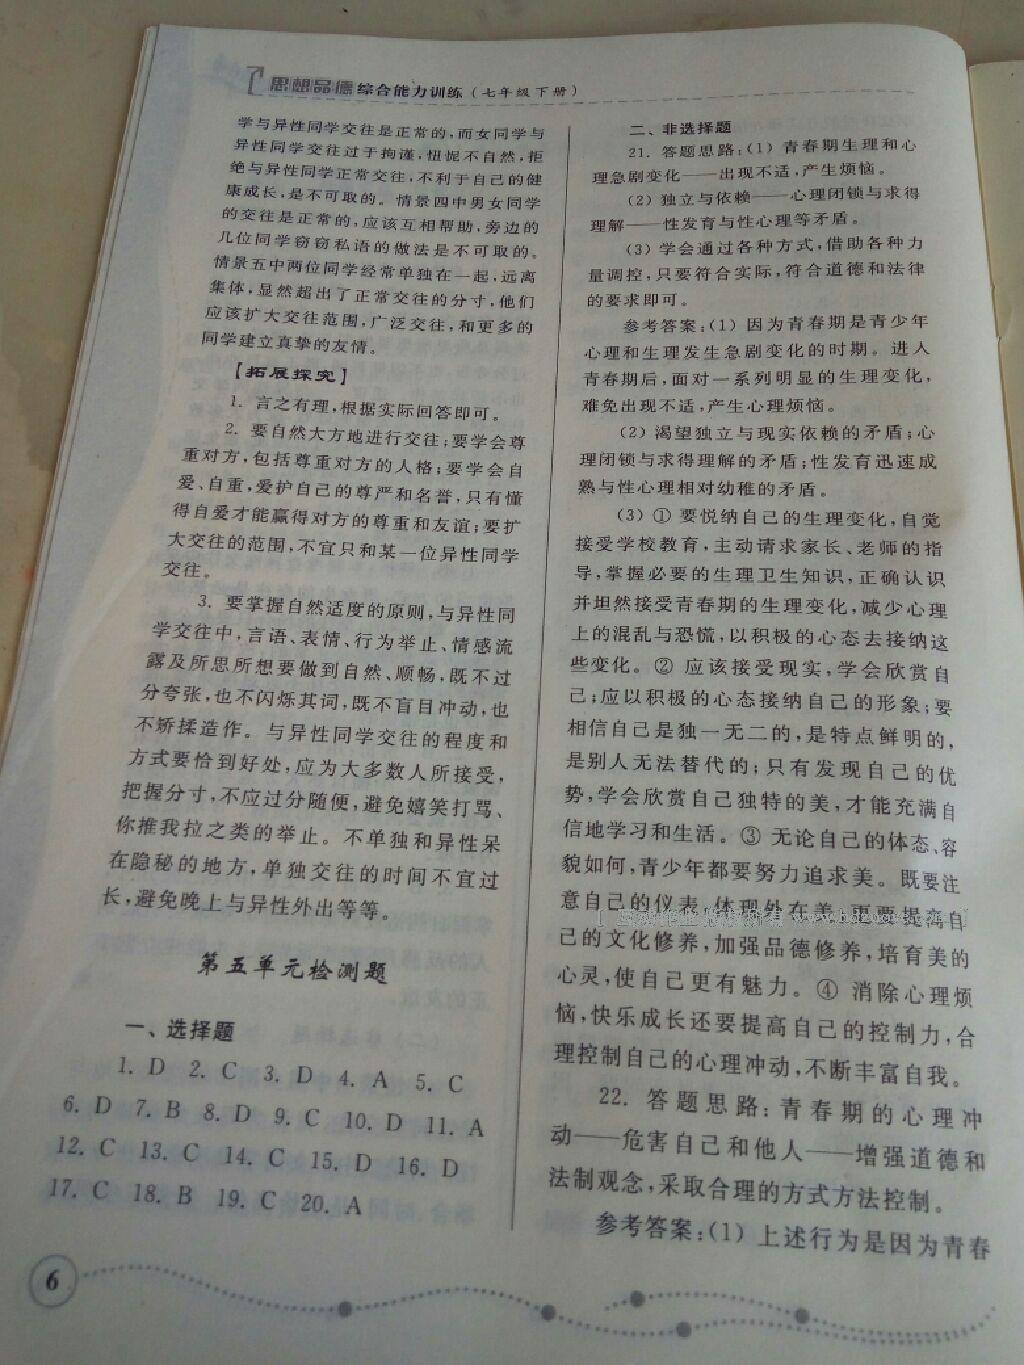 思想品德综合能力训练（七年级下册）
学与异性同学交往是正常的,而女同学与
异性同学交往过于拘谨,忸怩不自然,拒
绝与异性同学正常交往,不利于自己的健
康成长,是不可取的。情景四中男女同学
的交往是正常的,应该互相帮助,旁边的
几位同学窃窃私语的做法是不可取的。
情景五中两位同学经常单独在一起,远离
集体,显然超出了正常交往的分寸,他们
应该扩大交往范围,广泛交往,和更多的
同学建立真挚的友情。
【拓展探究】
1. 言之有理,根据实际回答即可。
2. 要自然大方地进行交往;要学会尊
重对方,包括尊重对方的人格;要学会自
爱、自重,爱护自己的尊严和名誉,只有懂
得自爱才能赢得对方的尊重和友谊;要扩
大交往的范围,不宜只和某一位异性同学
交往。
3. 要掌握自然适度的原则,与异性同
学交往中,言语、表情、行为举止、情感流
露及所思所想要做到自然、顺畅,既不过
分夸张,也不闪烁其词,既不盲目冲动,也
不矫揉造作。与异性同学交往的程度和
方式要恰到好处,应为大多数人所接受,
把握分寸,不应过分随便,避免嬉笑打骂、
你推我拉之类的举止。不单独和异性呆
在隐秘的地方,单独交往的时间不宜过
长,避免晚上与异性外出等等。
第五单元检测题
一、选择题
1. D 2. C 3. D 4. A 5. C
6. D 7. B 8. D 9. C 10. D 11. A
12. C 13. C 14. C 15. D 16. D
17. C 18. B 19. C 20. A
6
二、非选择题
21. 答题思路:(1) 青春期生理和心
理急剧变化——出现不适,产生烦恼。
(2) 独立与依赖——心理闭锁与求得
理解——性发育与性心理等矛盾。
(3) 学会通过各种方式,借助各种力
量调控,只要符合实际,符合道德和法律
的要求即可。
参考答案:(1) 因为青春期是青少年
心理和生理发生急剧变化的时期。进入
青春期后,面对一系列明显的生理变化,
难免出现不适,产生心理烦恼。
(2) 渴望独立与现实依赖的矛盾;心
理闭锁与求得理解的矛盾;性发育迅速成
熟与性心理相对幼稚的矛盾。
(3) ① 要悦纳自己的生理变化,自觉
接受学校教育,主动请求家长、老师的指
导,掌握必要的生理卫生知识,正确认识
并坦然接受青春期的生理变化,减少心理
上的混乱与恐慌,以积极的心态去接纳这
些变化。② 应该接受现实,学会欣赏自
己;应以积极的心态接纳自己的形象;要
相信自己是独一无二的,是特点鲜明的,
是别人无法替代的;只有发现自己的优
势,学会欣赏自己独特的美,才能充满自
信地学习和生活。③ 无论自己的体态、容
貌如何,青少年都要努力追求美。既要注
意自己的仪表,体现外在美,更要提高自
己的文化修养,加强品德修养,培育美的
心灵,使自己更有魅力。④ 消除心理烦
恼,快乐成长还要提高自己的控制力,合
理控制自己的心理冲动,不断丰富自我。
22. 答题思路:青春期的心理冲
动——危害自己和他人——增强道德和
法制观念,采取合理的方式方法控制。
参考答案:(1) 上述行为是因为青春